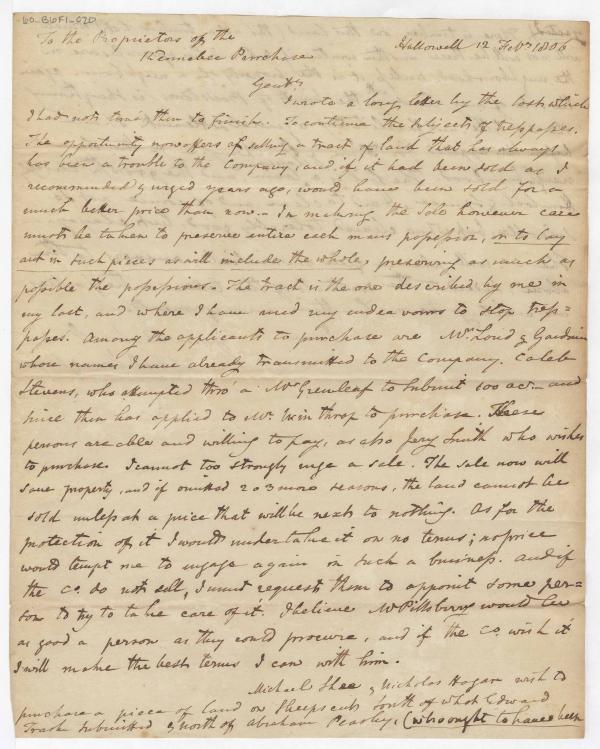 60-B6F1-020
To the Proprietors of the
Kennebec Purchase
Hallowell 12 Feby 1806
Gentn
I wrote a long letter by the last which
I had not time then to finish. To continue the subjects of trespasses.
The opportunity now offers of selling a tract of land that has always
has been a trouble to the Company, and if it had been sold as I
recommended & urged years ago, would have been sold for a
much better price than now. - In making the sale however care
must be taken to preserve entire each mans possession, or to lay
out in such pieces as will include the whole, preserving as much as
possible the possessions. The tract is the one described by me in
my last, and where I have used my endeavours to stop tres=
passes. Among the applicants to purchase are Mr Loud & Gardner
whose names I have already transmitted to the Company. Caleb
Stevens, who attempted thro' a Mr Grenleaf to submit 600 acs - and
since then has applied to Mr Winthrop to purchase. These
persons are able and willing to pay, as also Jery Smith who wishes
to purchase. I cannot too strongly urge a sale. The sale now will
save property, and if omitted 2 or 3 more seasons, the land cannot be
sold unless at a price that will be next to nothing. As for the
protection of it I would undertake it on no terms; no price
would tempt me to engage again in such a business. And if
the Co. do not sell, I must request them to appoint some per=
son to try to take care of it. I believe Mr Pillsberry would be
as good a person as they could procure, and if the Co. wish it
I will make the best terms I can with him.
Michael Shee & Nicholas Hogan wish to
purchase a piece of land on Sheepscut south of what Edward
Trask submitted & north of Abraham Peasley, (who ought to have been